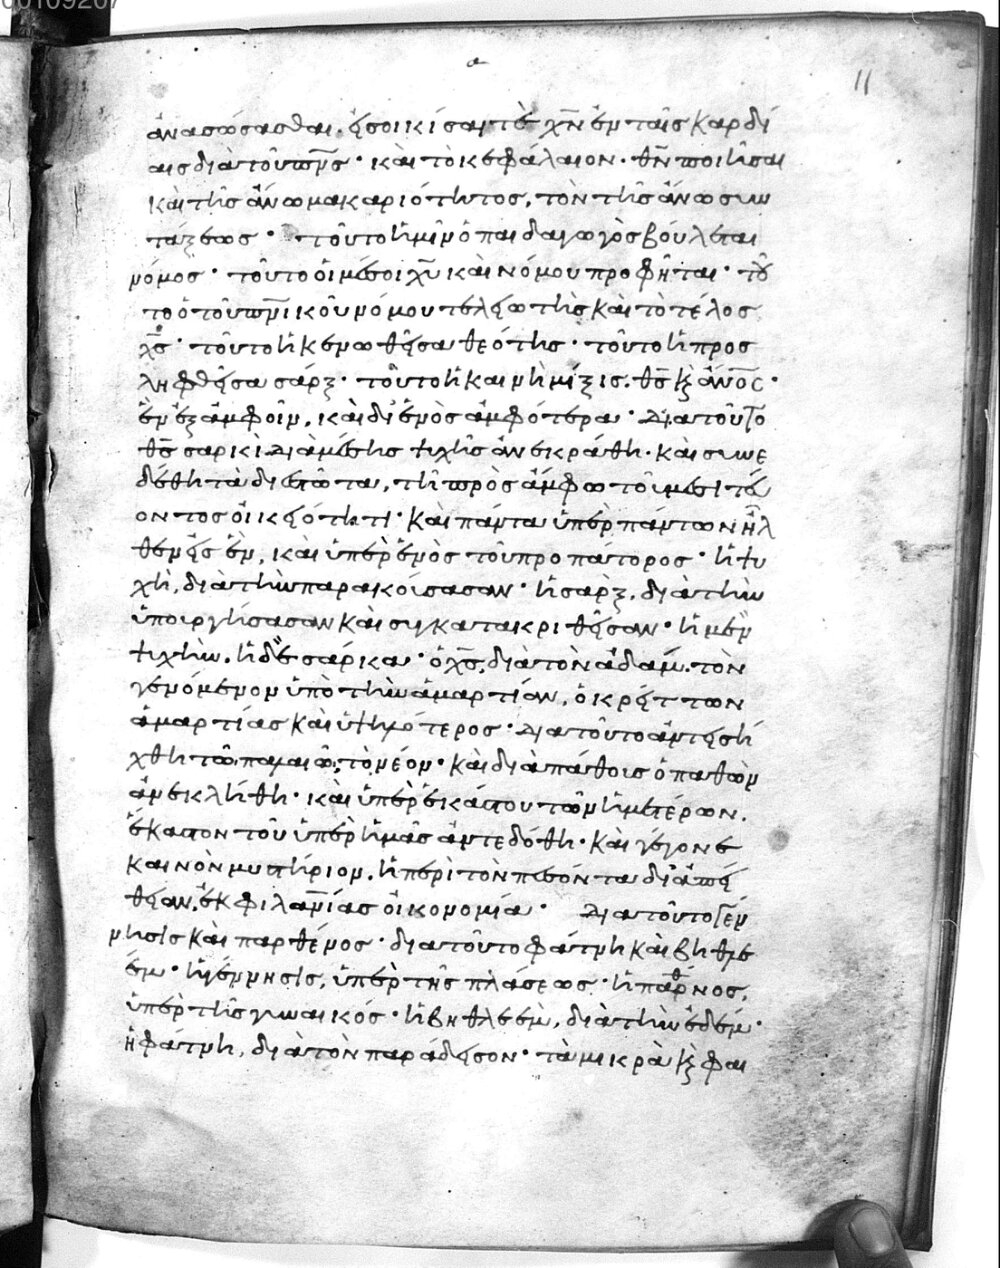 00109267
α
11
ἀνασώσασθαι· εἰσοικίσαι τὲ χ̅ν̅ ἐν ταῖς καρδί
αις διὰ τοῦ π̅ν̅ς̅· καὶ τὸ κεφάλαιον· θ̅ν̅ ποιῆσαι
καὶ τῆς ἄνω μακαριότητος, τὸν τῆς ἄνω συν
τάξεως· τοῦτο ἡμῖν ὁ παιδαγωγὸς βούλεται
νόμος· τοῦτο οἱ μέσοι χ̅υ̅ καὶ νόμου προφῆται· τοῦ
το ὁ τοῦ π̅ν̅ικοῦ νόμου τελειωτὴς καὶ τὸ τέλος
χ̅ς̅· τοῦτο ἡ κενωθεῖσα θεότης· τοῦτο ἡ προσ
ληφθεῖσα σάρξ· τοῦτο ἡ καινὴ μίξις· θ̅ς̅ κ̀ ἄν̅ο̅ς̅·
ἓν ἐξ ἀμφοῖν, καὶ δι' ἑνὸς ἀμφότερα· Διατοῦτο
θ̅ς̅ σαρκὶ διὰ μέσης ψυχῆς ἀνεκράθη· καὶ συνε
δέθη τὰ διεστῶτα, τῆ πρὸς ἄμφω τοῦ μεσιτεύ
οντος οἰκειότητι· Καὶ πάντα ὑπὲρ πάντων ἦλ
θεν εἰς ἓν, καὶ ὑπὲρ ἑνὸς τοῦ προπάτορος· ἡ ψυ
χὴ, διὰ τὴν παρακούσασαν· ἡ σὰρξ, διὰ τὴν
ὑπουργήσασαν καὶ συγκατακριθεῖσαν· ἡ μὲν
ψυχὴν, ἡ δὲ σάρκα· ὁ χ̅ς̅, διὰ τὸν ἀδὰμ, τὸν
γενόμενον ὑπὸ τὴν ἁμαρτίαν, ὁ κρείττων
ἁμαρτίας καὶ ὑψηλότερος· Διατοῦτο ἀντεισή
χθη τῶ παλαιῶ, τὸ νέον· καὶ διὰ πάθους ὁ παθὼν
ἀνεκλήθη· καὶ ὑπὲρ ἑκάστου τῶν ἡμετέρων,
ἕκαστον τοῦ ὑπὲρ ἡμᾶς ἀντεδόθη· καὶ γέγονε
καινὸν μυστήριον, ἡ περὶ τὸν πεσόντα δι' ἀπεί
θειαν, ἐκ φιλα̅ν̅ίας οἰκονομία· Διατοῦτο γέν
νησις καὶ παρθένος· διατοῦτο φάτνη καὶ βηθλε
έμ· ἡ γέννησις, ὑπὲρ τῆς πλάσεως· ἡ πάρθενος,
ὑπὲρ τῆς γυναικός· ἡ βηθλεὲμ, διὰ τὴν ἐδέμ·
ἡ φάτνη, διὰ τὸν παράδεισον· τὰ μικρὰ κ̀ φαι